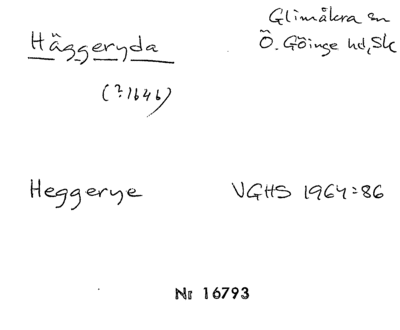 Häggeryda
Glimåkra sn
Ö. Göinge hd, Sk
(?1646)
Heggerye
VGHS 1964:86
Nr 16793